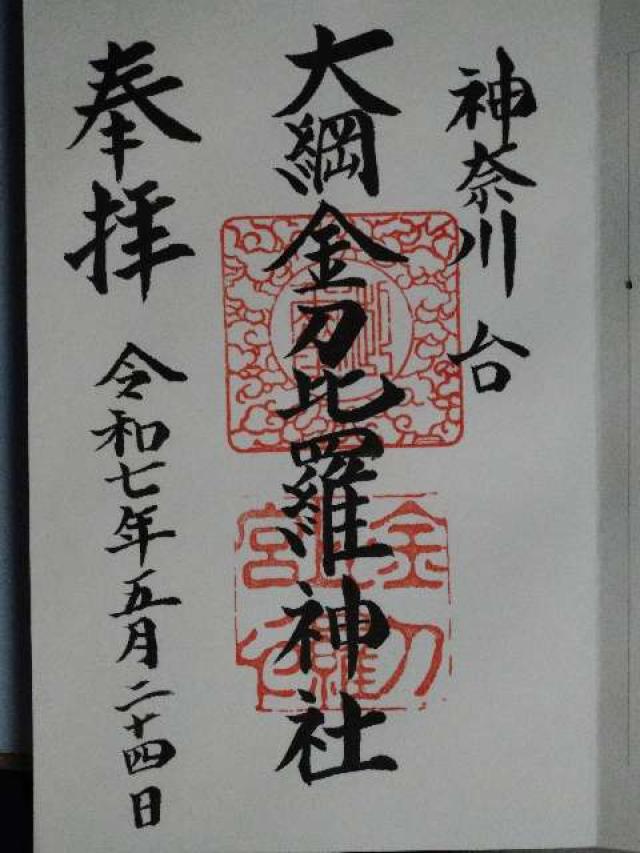 神奈川台
大綱金刀比羅神社
奉拝
令和七年五月二十四日